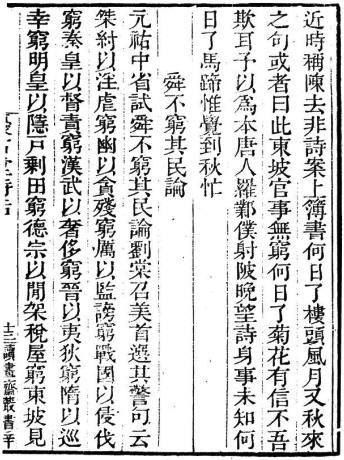 近時稱陳去非詩案上簿書何日了樓頭風月又秋來
之句或者曰此東坡官事無窮何日了菊花有信不吾
欺耳予以為本唐人羅鄴僕射陂晚望詩身事未知何
日了馬蹄惟覺到秋忙
舜不窮其民論
元祐中省試舜不窮其民論劉棠召美首選其警句云
桀紂以淫虐窮幽以貪殘窮厲以監謗窮戰國以侵伐
窮秦皇以督責窮漢武以奢侈窮晉以夷狄窮隋以巡
幸窮明皇以隱戸剰田窮德宗以閒架稅屋窮東坡見
士三讀畫齋叢書辛